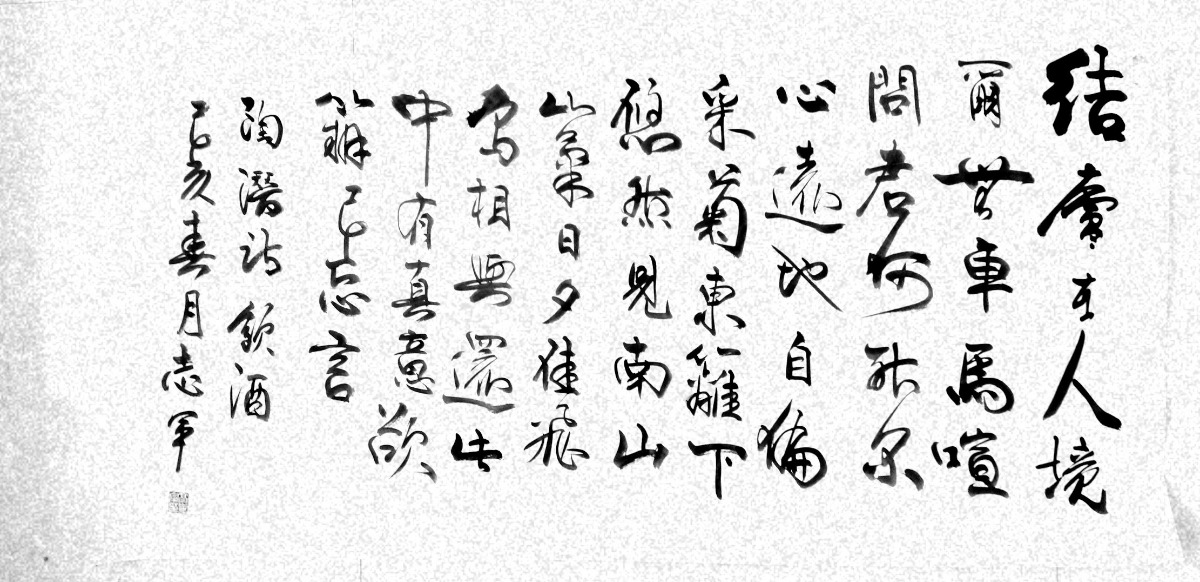 結廬在人境
而無車馬喧
問君何能尔
心遠地自偏
采菊東籬下
悠然見南山
山氣日夕佳飛
鳥相與還此
中有真意欲
辨已忘言
陶潛詩飲酒
己亥春月志軍